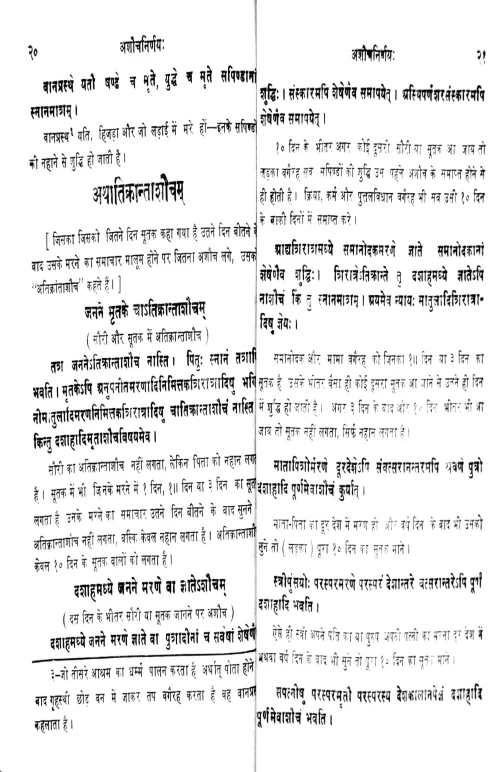 २०
अशौचनिर्णयः
वानप्रस्थे यतौ षण्ढे च मृते, युद्धे च मृते सपिण्डानां
स्नानमात्रम् ।
वानप्रस्थ¹ यति, हिजड़ा और जो लड़ाई में मरे हों—इनके सपिण्डों
को नहाने से शुद्धि हो जाती है ।
अथातिक्रान्ताशौचम्
[ जिसका जिसको जितने दिन सूतक कहा गया है उतने दिन बीतने के
बाद उसके मरने का समाचार मालूम होने पर जितना अशौच लगे, उसको
“अतिक्रांताशौच” कहते हैं । ]
जनने मृतके चाऽतिक्रान्ताशौचम्
( सौरी और सूतक में अतिक्रान्ताशौच )
तत्र जननेऽतिक्रान्ताशौचं नास्ति । पितुः स्नानं तत्रापि
भवति । मृतकेऽपि अनुपनीतमरणादिनिमित्तकत्रिरात्रादिषु भगि
नीमातुलादिमरणनिमित्तकत्रिरात्रादिषु चातिक्रान्ताशौचं नास्ति
किन्तु दशाहादिमृताशौचविषयमेव ।
सौरी का अतिक्रान्ताशौच नहीं लगता, लेकिन पिता को नहान लगता
है । सूतक में भी जिनके मरने में १ दिन, १॥ दिन या ३ दिन का सूतक
लगता है उनके मरने का समाचार उतने दिन बीतने के बाद सुनने
अतिक्रान्ताशौच नहीं लगता, बल्कि केवल नहान लगता है । अतिक्रान्ताशौच
केवल १० दिन के सूतक वालों को लगता है ।
दशाहमध्ये जनने मरणे वा ज्ञातेऽशौचम्
( दस दिन के भीतर सौरी या सूतक जानने पर अशौच )
दशाहमध्ये जनने मरणे ज्ञाते वा पुत्रादीनां च सर्वेषां शेषेणैव
१–जो तीसरे आश्रम का धर्म्म पालन करता है अर्थात् पोता होने
बाद गृहस्थी छोड़ वन में जाकर तप वगैरह करता है वह वानप्रस्थ
कहलाता है ।
अशौचनिर्णयः
२१
शुद्धिः । संस्कारमपि शेषेणैव समापयेत् । अस्थिपर्णशरसंस्कारमपि
शेषेणैव समापयेत् ।
१० दिन के भीतर अगर कोई दूसरी सौरी या सूतक आ जाय तो
लड़का वगैरह सब सपिण्डों की शुद्धि उस पहले अशौच के समाप्त होने में
ही होती है । क्रिया, कर्म और पुत्तलविधान वगैरह भी सब उसी १० दिन
के बाकी दिनों में समाप्त करे ।
आद्यत्रिरात्रमध्ये समानोदकमरणे जाते समानोदकानां
शेषेणैव शुद्धिः । त्रिरात्रेऽतिक्रान्ते तु दशाहमध्ये जातेऽपि
नाशौचं किं तु स्नानमात्रम् । अयमेव न्यायः मातुलादित्रिरात्रा-
दिषु ज्ञेयः ।
समानोदक और मामा वगैरह की जिनका १॥ दिन या ३ दिन का
सूतक है उसके भीतर वैसा ही कोई दूसरा सूतक आ जाने से उतने ही दिन
में शुद्धि हो जाती है । अगर ३ दिन के बाद और १० दिन भीतर भी आ
जाय तो सूतक नहीं लगता, सिर्फ नहान लगता है ।
मातापित्रोर्मरणे दूरदेशेऽपि संवत्सरानन्तरमपि श्रवणे पुत्रो
दशाहादि पूर्णमेवाशौचं कुर्यात् ।
माता-पिता का दूर देश में मरण हो और वर्ष दिन के बाद भी उसको
सुने तो ( लड़का ) पूरा १० दिन का सूतक माने ।
स्त्रीपुंसयोः परस्परमरणे परस्परं देशान्तरे वत्सरान्तरेऽपि पूर्णं
दशाहादि भवति ।
ऐसे ही स्त्री अपने पति का या पुरुष अपनी पत्नी का मरना दूर देश में
अथवा वर्ष दिन के बाद भी सुने तो पूरा १० दिन का सूतक माने ।
सपत्नीषु परस्परमृतौ परस्परस्य देशकालानपेक्षं दशाहादि
पूर्णमेवाशौचं भवति ।